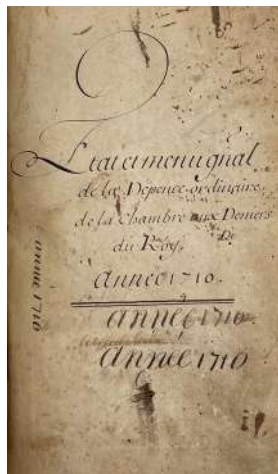 Etat et menu gñal
de la Depence ordinaire
de la Chambre aux Deniers
du Roy. De
Année 1710.
année 1710
année 1710
année 1710